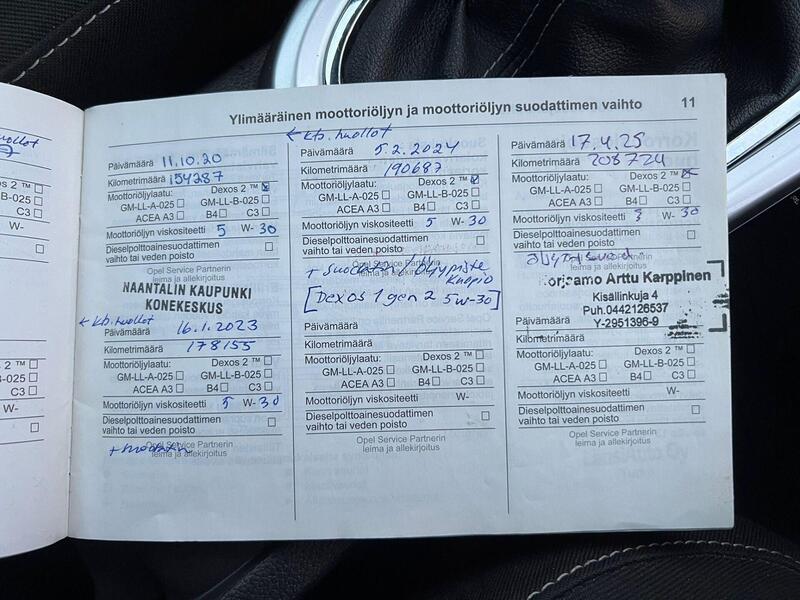 Ylimääräinen moottoriöljyn ja moottoriöljyn suodattimen vaihto 11
Päivämäärä 11.10.20
Kilometrimäärä 154287
Moottoriöljylaatu: Dexos 2 ™
GM-LL-A-025 GM-LL-B-025
ACEA A3 B4 C3
Moottoriöljyn viskositeetti 5 W- 30
Dieselpolttoainesuodattimen
vaihto tai veden poisto
Opel Service Partnerin
leima ja allekirjoitus
NAANTALIN KAUPUNKI
KONEKESKUS
← kts. huollot
Päivämäärä 16.1.2023
Kilometrimäärä 178155
Moottoriöljylaatu: Dexos 2 ™
GM-LL-A-025 GM-LL-B-025
ACEA A3 B4 C3
Moottoriöljyn viskositeetti 5 W- 30
Dieselpolttoainesuodattimen
vaihto tai veden poisto
Opel Service Partnerin
leima ja allekirjoitus
← kts. huollot
Päivämäärä 5.2.2024
Kilometrimäärä 190687
Moottoriöljylaatu: Dexos 2 ™
GM-LL-A-025 GM-LL-B-025
ACEA A3 B4 C3
Moottoriöljyn viskositeetti 5 W- 30
Dieselpolttoainesuodattimen
vaihto tai veden poisto
Opel Service Partnerin
leima ja allekirjoitus
+ suodatin / öljypiste
kuopio
[Dexos 1 gen 2 5w-30]
Päivämäärä
Kilometrimäärä
Moottoriöljylaatu: Dexos 2 ™
GM-LL-A-025 GM-LL-B-025
ACEA A3 B4 C3
Moottoriöljyn viskositeetti W-
Dieselpolttoainesuodattimen
vaihto tai veden poisto
Opel Service Partnerin
leima ja allekirjoitus
Päivämäärä 17.4.25
Kilometrimäärä 208724
Moottoriöljylaatu: Dexos 2 ™
GM-LL-A-025 GM-LL-B-025
ACEA A3 B4 C3
Moottoriöljyn viskositeetti W- 30
Dieselpolttoainesuodattimen
vaihto tai veden poisto
Korjaamo Arttu Karppinen
Kisallinkuja 4
Puh.0442126537
Y-2951396-9
Päivämäärä
Kilometrimäärä
Moottoriöljylaatu: Dexos 2 ™
GM-LL-A-025 GM-LL-B-025
ACEA A3 B4 C3
Moottoriöljyn viskositeetti W-
Dieselpolttoainesuodattimen
vaihto tai veden poisto
Opel Service Partnerin
leima ja allekirjoitus